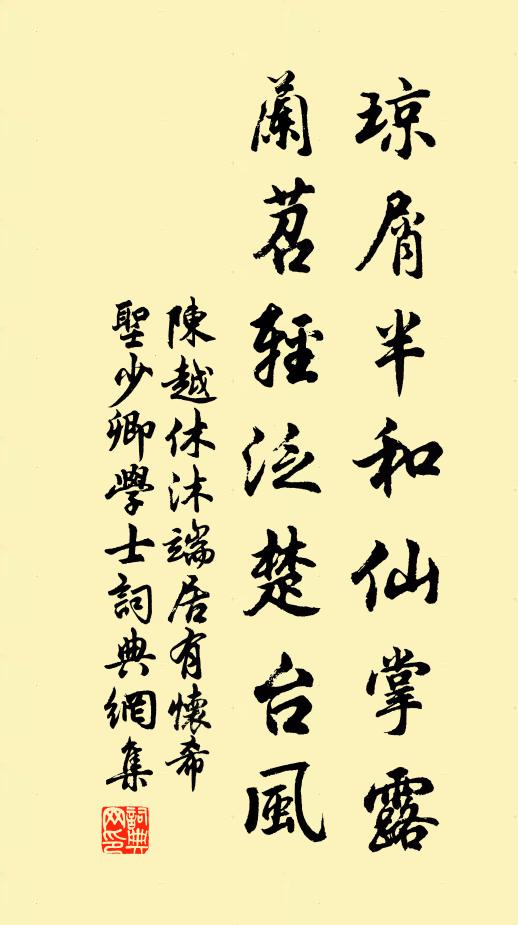 琼屑半和仙掌露
蘭苕輕泛楚台風
陳越休沐端居有懷希
聖少卿學士詞典網集
詞典网印